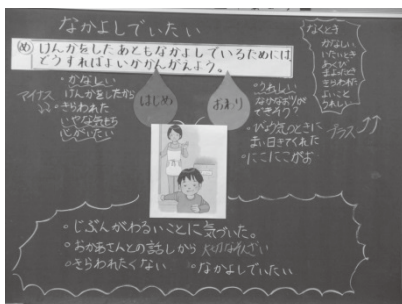 なかよしでいたい
め けんかをしたあともなかよしでいるためには、
どうすればよいかかんがえよう。
なくとき
かなしい
いたいとき
あくび
きらわれた
よいこと
うれしい
はじめ
おわり
・かなしい
けんかをしたから
マイナス
・きらわれた
いやな気もち
心がいたい
・うれしい
なかなおりが
できそう?
・びょう気のときに
まい日きてくれた
プラス
・にこにこがお
・じぶんがわるいことに気づいた。
・おかあさんとの話しから
・きらわれたくない
・なかよしでいたい